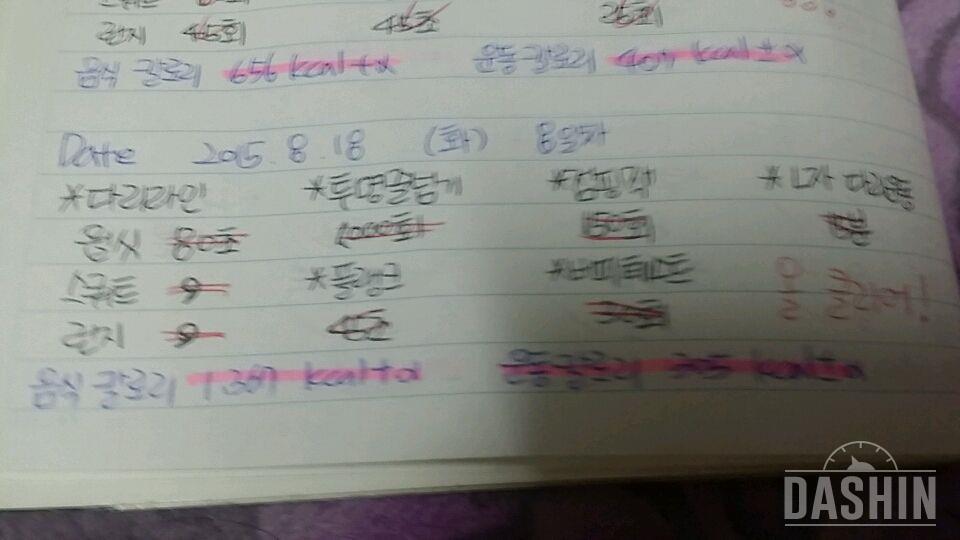 런지 45회 45초 25회
음식 칼로리 656 kcal+α 운동 칼로리 407 kcal±α
Date 2015. 8. 18 (화) 8일차
*다리라인 *투명줄넘기 *점핑잭 *L자 다리운동
80초 1000회 150회
스쿼트 *플랭크 *버피테스트 올 클리어!
런지 45초
음식 칼로리 1387 kcal+α 운동 칼로리 kcal±α
DASHIN